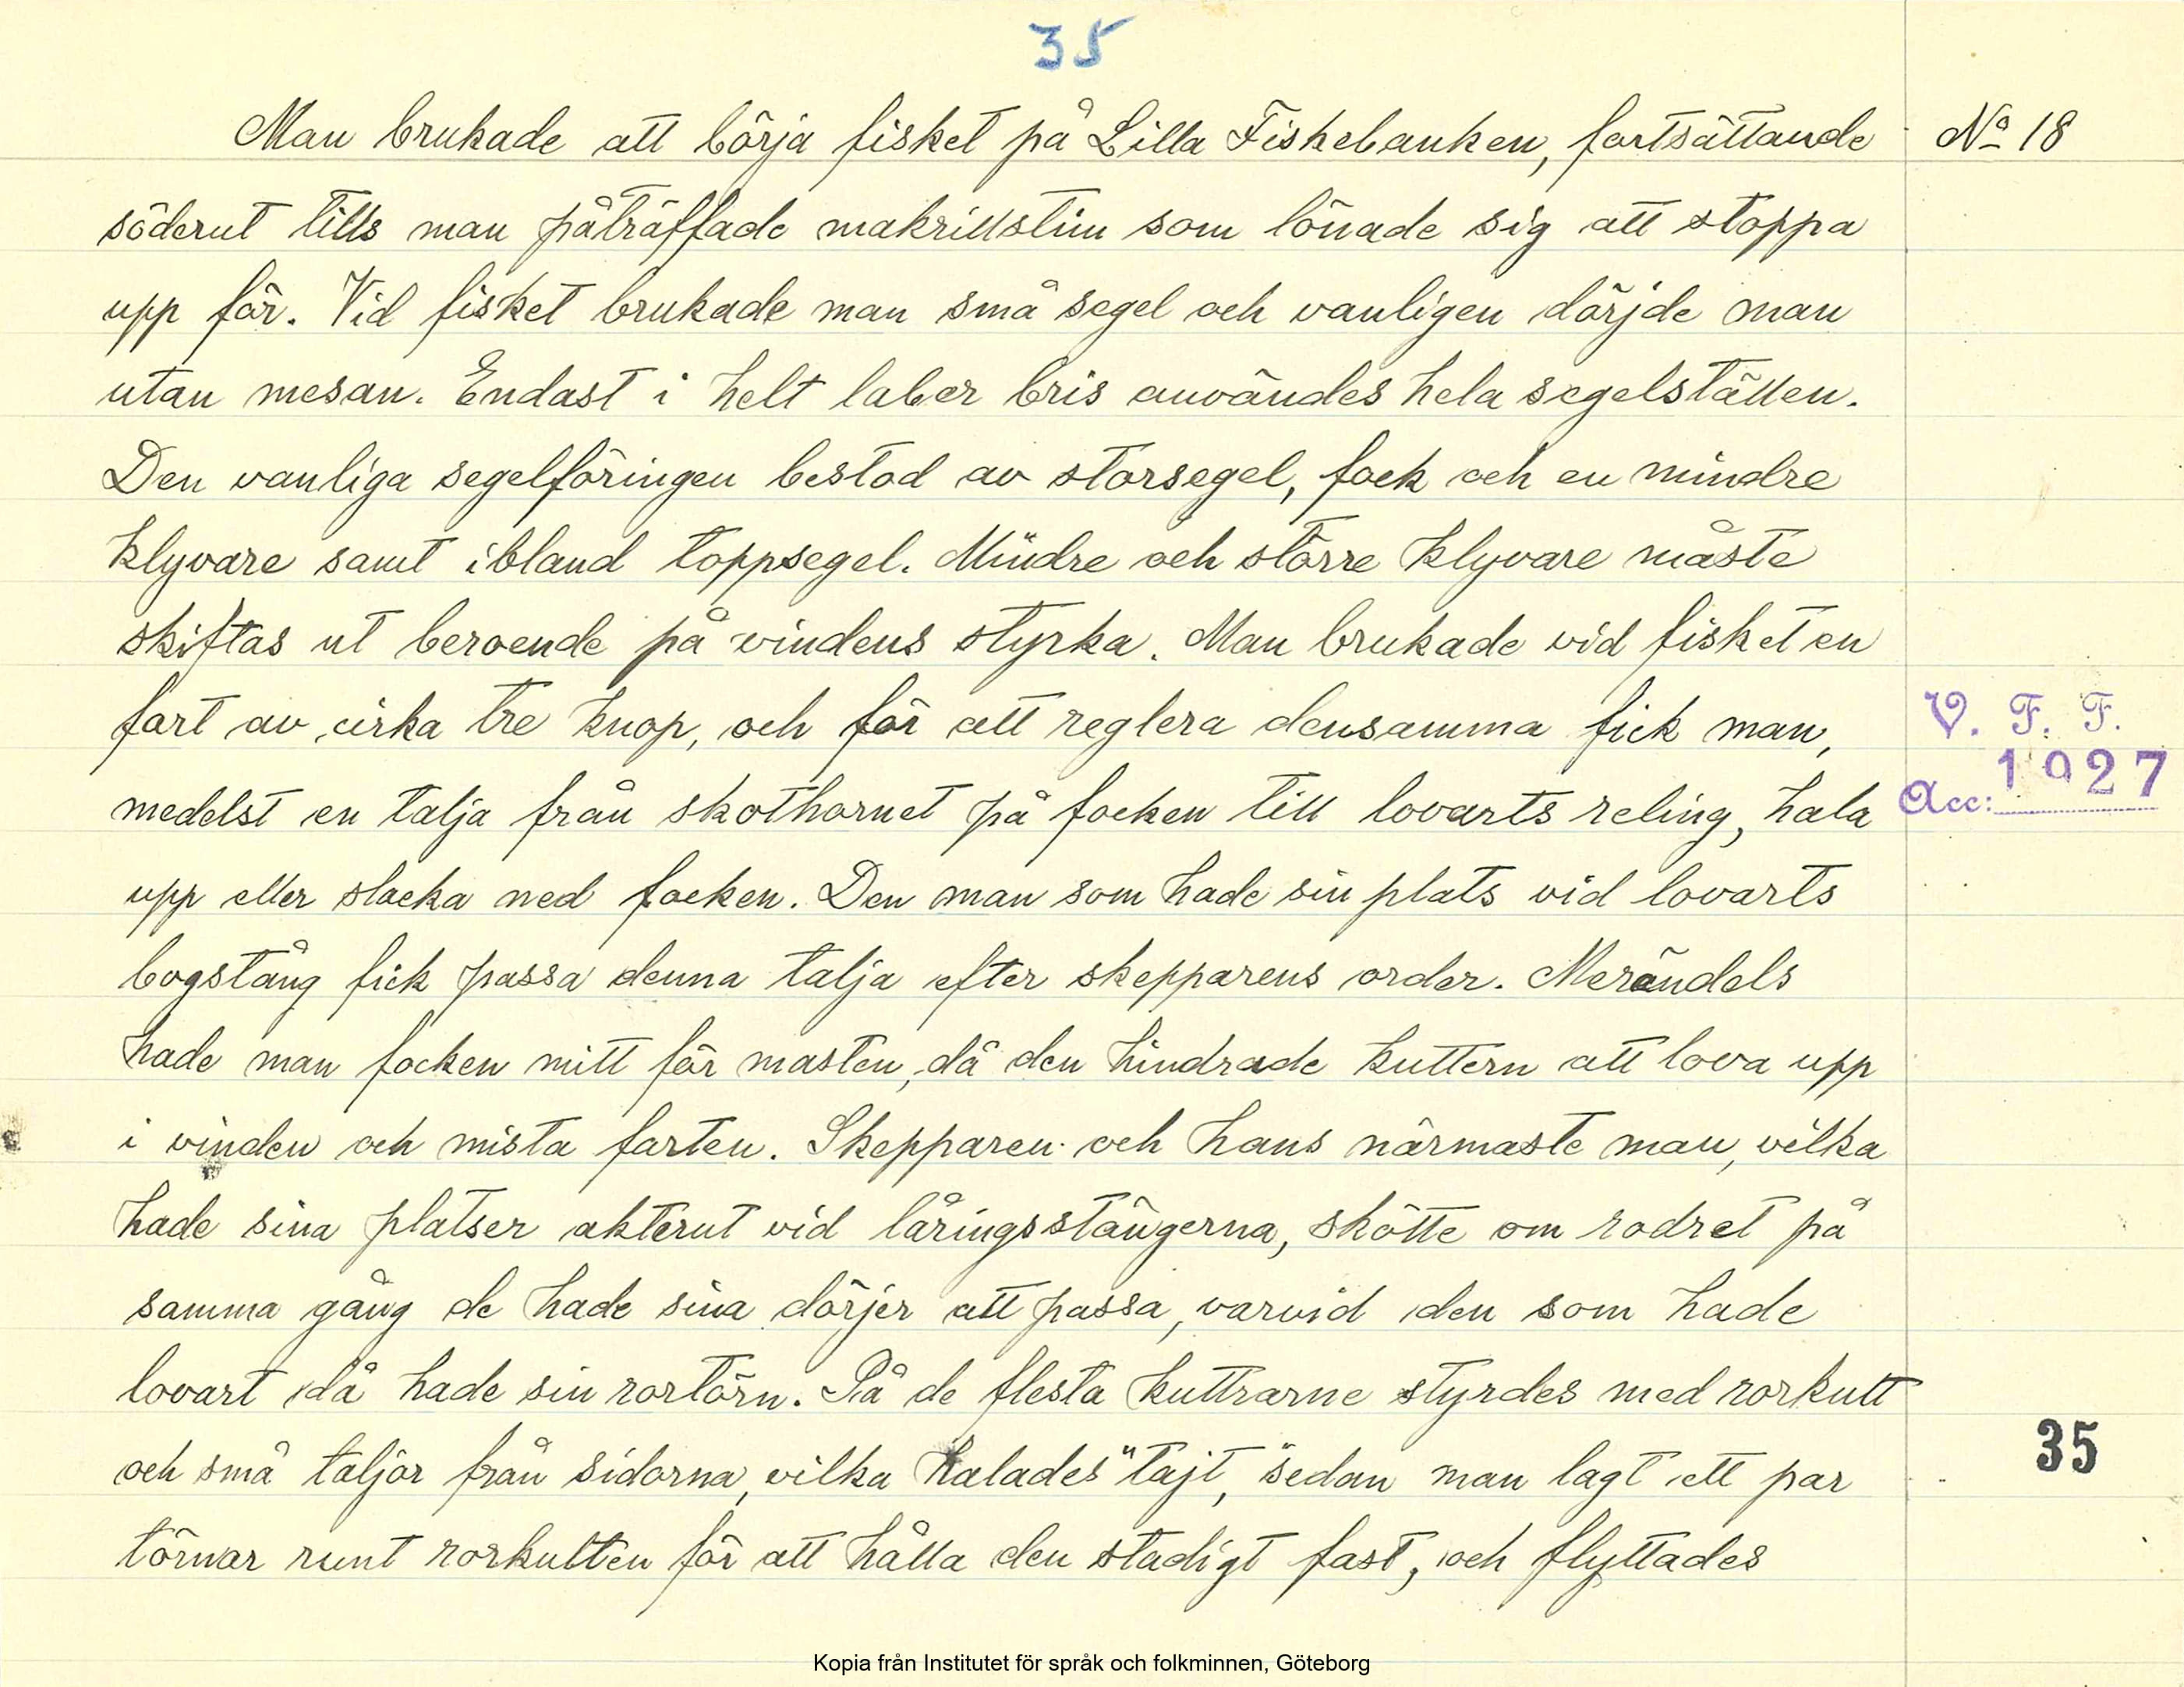 35
Man brukade att börja fisket på Lilla Fiskebanken, fortsättande
Nº 18
söderut tills man påträffade makrillstim som lönade sig att stoppa
upp för. Vid fisket brukade man små segel och vanligen dörjde man
utan mesan. Endast i helt laber bris användes hela segelställen.
Den vanliga segelföringen bestod av storsegel, fock och en mindre
klyvare samt ibland toppsegel. Mindre och större klyvare måste
skiftas ut beroende på vindens styrka. Man brukade vid fisket en
fart av cirka tre knop, och för att reglera densamma fick man,
V. F. F.
medelst en talja från skothornet på focken till lovarts reling, hala
Acc: 1927
upp eller slacka ned focken. Den man som hade sin plats vid lovarts
bogstång fick passa denna talja efter skepparens order. Merändels
hade man focken mitt för masten, då den hindrade kuttern att lova upp
i vinden och mista farten. Skepparen och hans närmaste man, vilka
hade sina platser akterut vid låringsstängerna, skötte om rodret på
samma gång de hade sina dörjer att passa, varvid den som hade
lovart då hade sin rortörn. På de flesta kuttrarne styrdes med rorkult
och små taljor från sidorna, vilka halades "tajt," sedan man lagt ett par
35
törnar runt rorkulten för att hålla den stadigt fast, och flyttades
Kopia från Institutet för språk och folkminnen, Göteborg